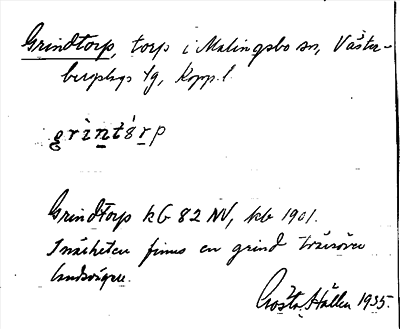 Grindtorp, torp i Malingsbo sn, Väster-
bergslags tg, Kopp. l.
grint$\acute{o}$rp
Grindtorp kG 82 NV, kb 1901.
I närheten finns en grind tvärsöver
landsvägen.
Gösta Hállen 1935.